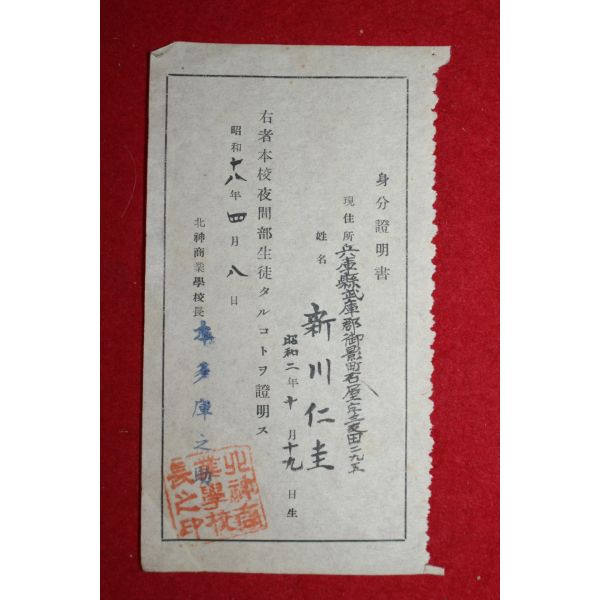 身分證明書
現住所 兵庫縣武庫郡御影町石屋
姓名 新川仁圭
昭和二年十月十九日生
右者本校夜間部生徒タルコトヲ證明ス
昭和十八年四月八日
北神商業學校長 本多庫之助
北神商
業學校
長之印